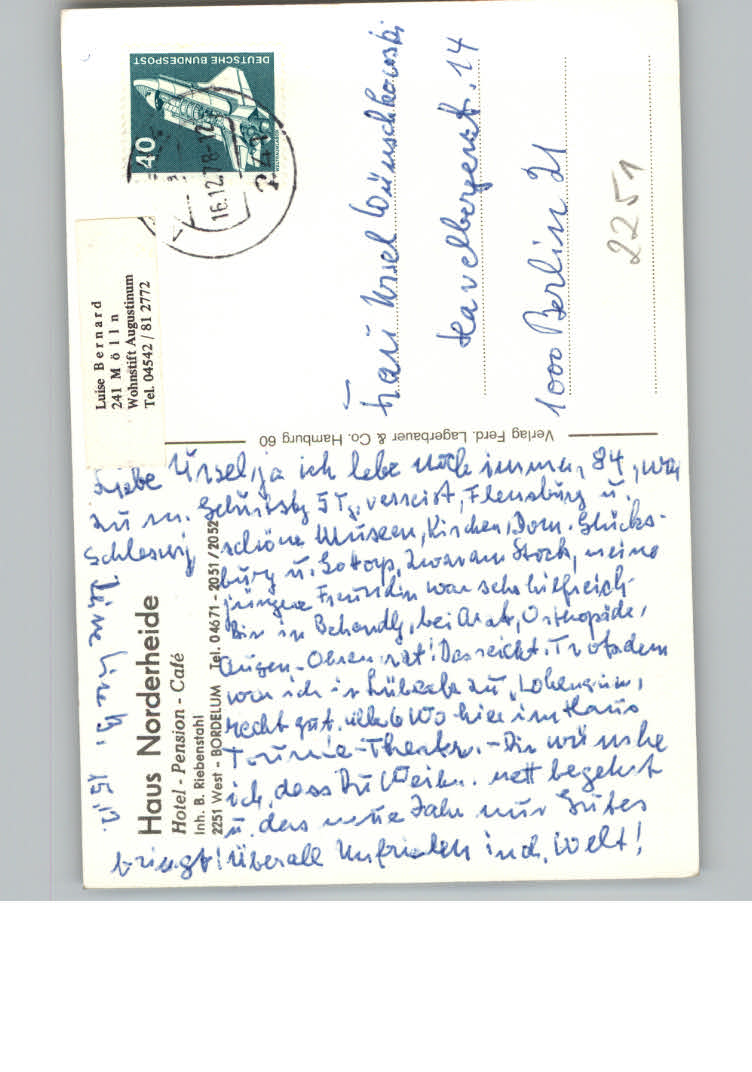 DEUTSCHE BUNDESPOST
40
16.12.78-12
Luise Bernard
241 Mölln
Wohnstift Augustinum
Tel. 04542 / 81 2772
Frau Ursel Wünschkowski
Havelbergerst. 14
1000 Berlin 21
2251
Verlag Ferd. Lagerbauer & Co. Hamburg 60
Haus Norderheide
Hotel - Pension - Café
Inh. B. Riebenstahl
2251 West - BORDELUM Tel. 04671 - 2051 / 2052
Liebe Ursel, ja ich lebe noch immer, 84, war
zu m. Geburtstg 5 Tg. verreist, Flensburg u.
Schleswig schöne Museen, Kirchen, Dom. Glücks-
burg u. Gottorp, zwar am Stock, meine
jüngere Freundin war sehr hilfreich
Bin in Behandlg. bei Arzt, Orthopäde,
Augen- Ohren Das reicht. Trotzdem
war ich in Lübeck zu "Lohengrin",
recht gut. alle 6 Wo hier im Haus
Tournée-Theater. - Dir wünsche
ich, dass Du Weihn. nett begehst
u. das neue Jahr nur Gutes
bringt! Überall Unfrieden in d. Welt!
Deine
15.12.